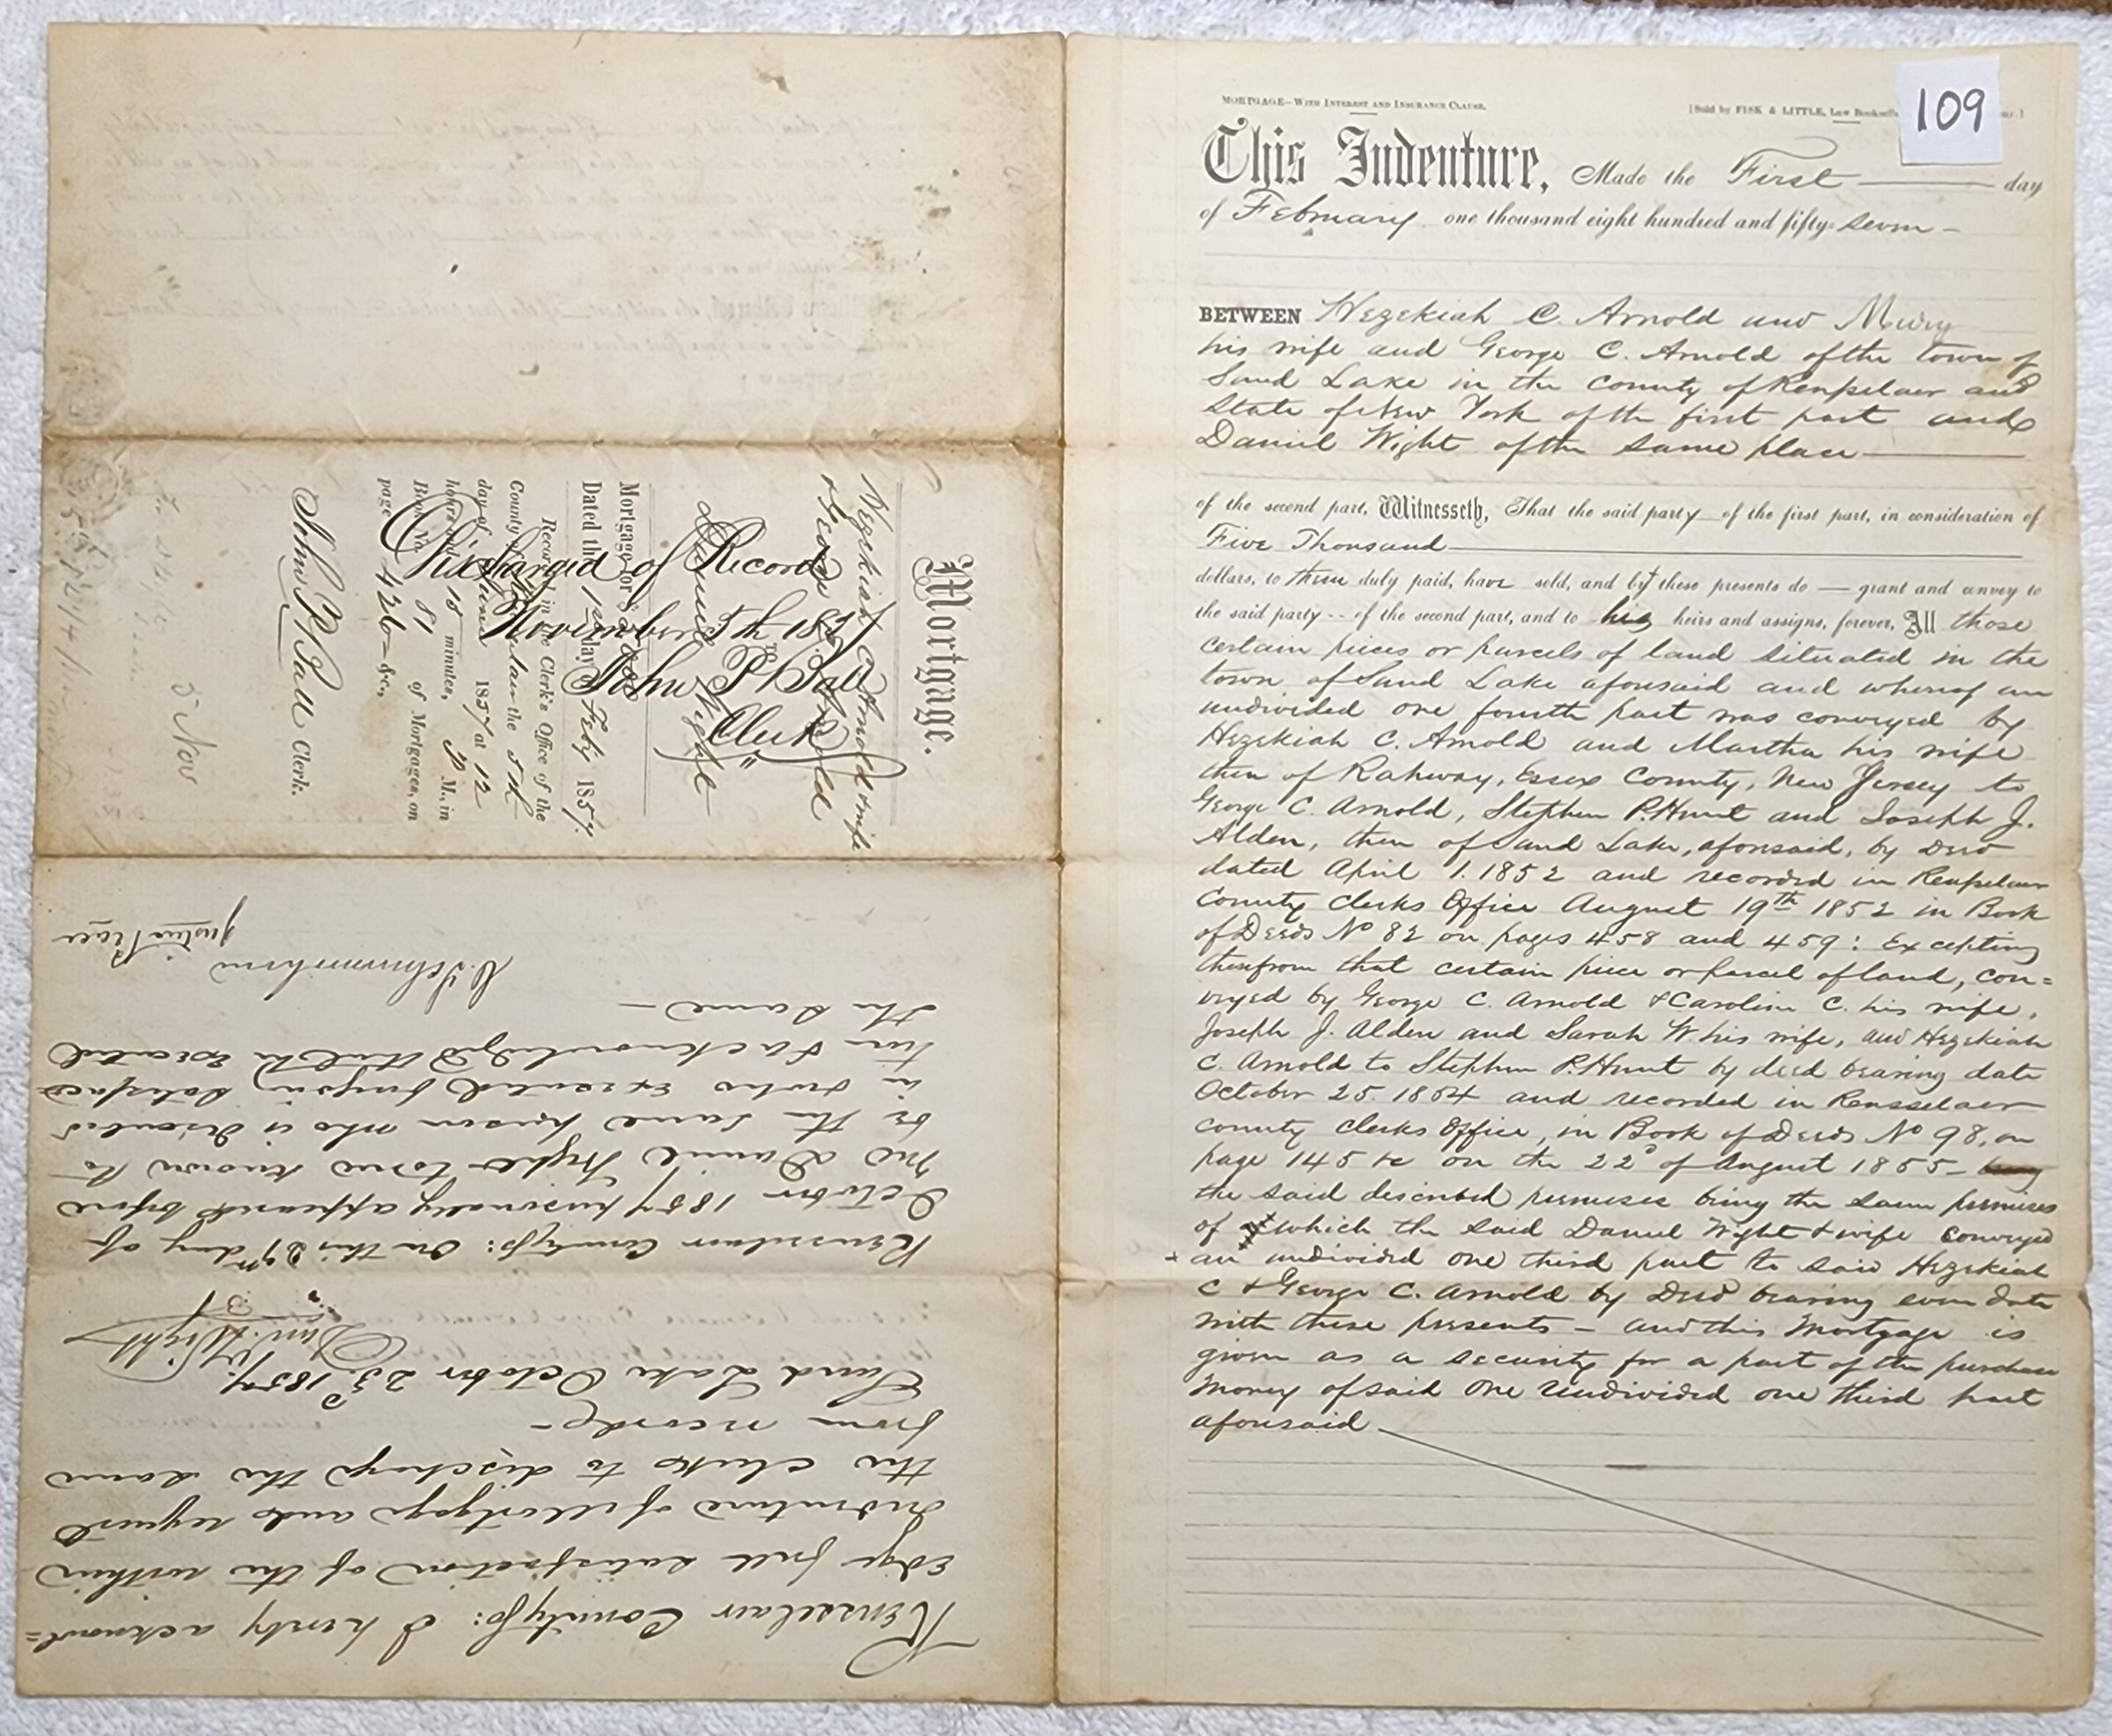 109
MORTGAGE—With Interest and Insurance Clause.
[Sold by FISK & LITTLE, Law Booksell
This Indenture, Made the First day
of February one thousand eight hundred and fifty-seven —
BETWEEN Hezekiah C. Arnold and Mary
his wife and George C. Arnold of the town of
Sand Lake in the County of Rensselaer and
State of New York of the first part and
Daniel Wight of the same place
of the second part, Witnesseth, That the said party of the first part, in consideration of
Five Thousand
dollars, to them duly paid, have sold, and by these presents do — grant and convey to
the said party -- of the second part, and to his heirs and assigns, forever, All those
certain pieces or parcels of land situated in the
town of Sand Lake aforesaid and whereof an
undivided one fourth part was conveyed by
Hezekiah C. Arnold and Martha his wife
then of Rahway, Essex County, New Jersey to
George C. Arnold, Stephen P. Hunt and Joseph J.
Alden, then of Sand Lake, aforesaid, by Deed
dated April 1. 1852 and recorded in Rensselaer
County Clerks Office August 19th 1852 in Book
of Deeds No 82 on pages 458 and 459: Excepting
therefrom that certain piece or parcel of land, con=
veyed by George C. Arnold & Caroline C. his wife,
Joseph J. Alden and Sarah W. his wife, and Hezekiah
C. Arnold to Stephen P. Hunt by deed bearing date
October 25. 1854 and recorded in Rensselaer
County Clerks Office, in Book of Deeds No 98, on
page 145 &c on the 22d of August 1855 -
the said described premises being the same premises
of which the said Daniel Wight & wife conveyed
an undivided one third part to said Hezekiah
C & George C. Arnold by Deed bearing even date
with these presents — and this Mortgage is
given as a security for a part of the purchase
money of said one undivided one third part
aforesaid
Mortgage.
Hezekiah C. Arnold & wife
& George C. Arnold
TO
Daniel Wight
Mortgage for $
Dated the 1st day Feby 1857.
Recorded in the Clerk's Office of the
County of the 5th
day of 1857 at 12
hours and 18 minutes, P M., in
Book No. 81 of Mortgages, on
page 426 — &c.,
John P. Ball Clerk.
Discharged of Record
November 5th 1857
John P. Ball
Clerk
5 Nov
Rensselaer County ss: I hereby acknowl=
edge full satisfaction of the within
Indenture of Mortgage and request
the clerk to discharge the same
from record —
Sand Lake October 23d 1857.
Danl. Wight
Rensselaer County ss: On this 29th day of
October 1857 personally appeared before
me Daniel Wight to me known to
be the same person who is described
in & who executed foregoing satisfac
tion & acknowledged that he executed
the same —
Justice Peace